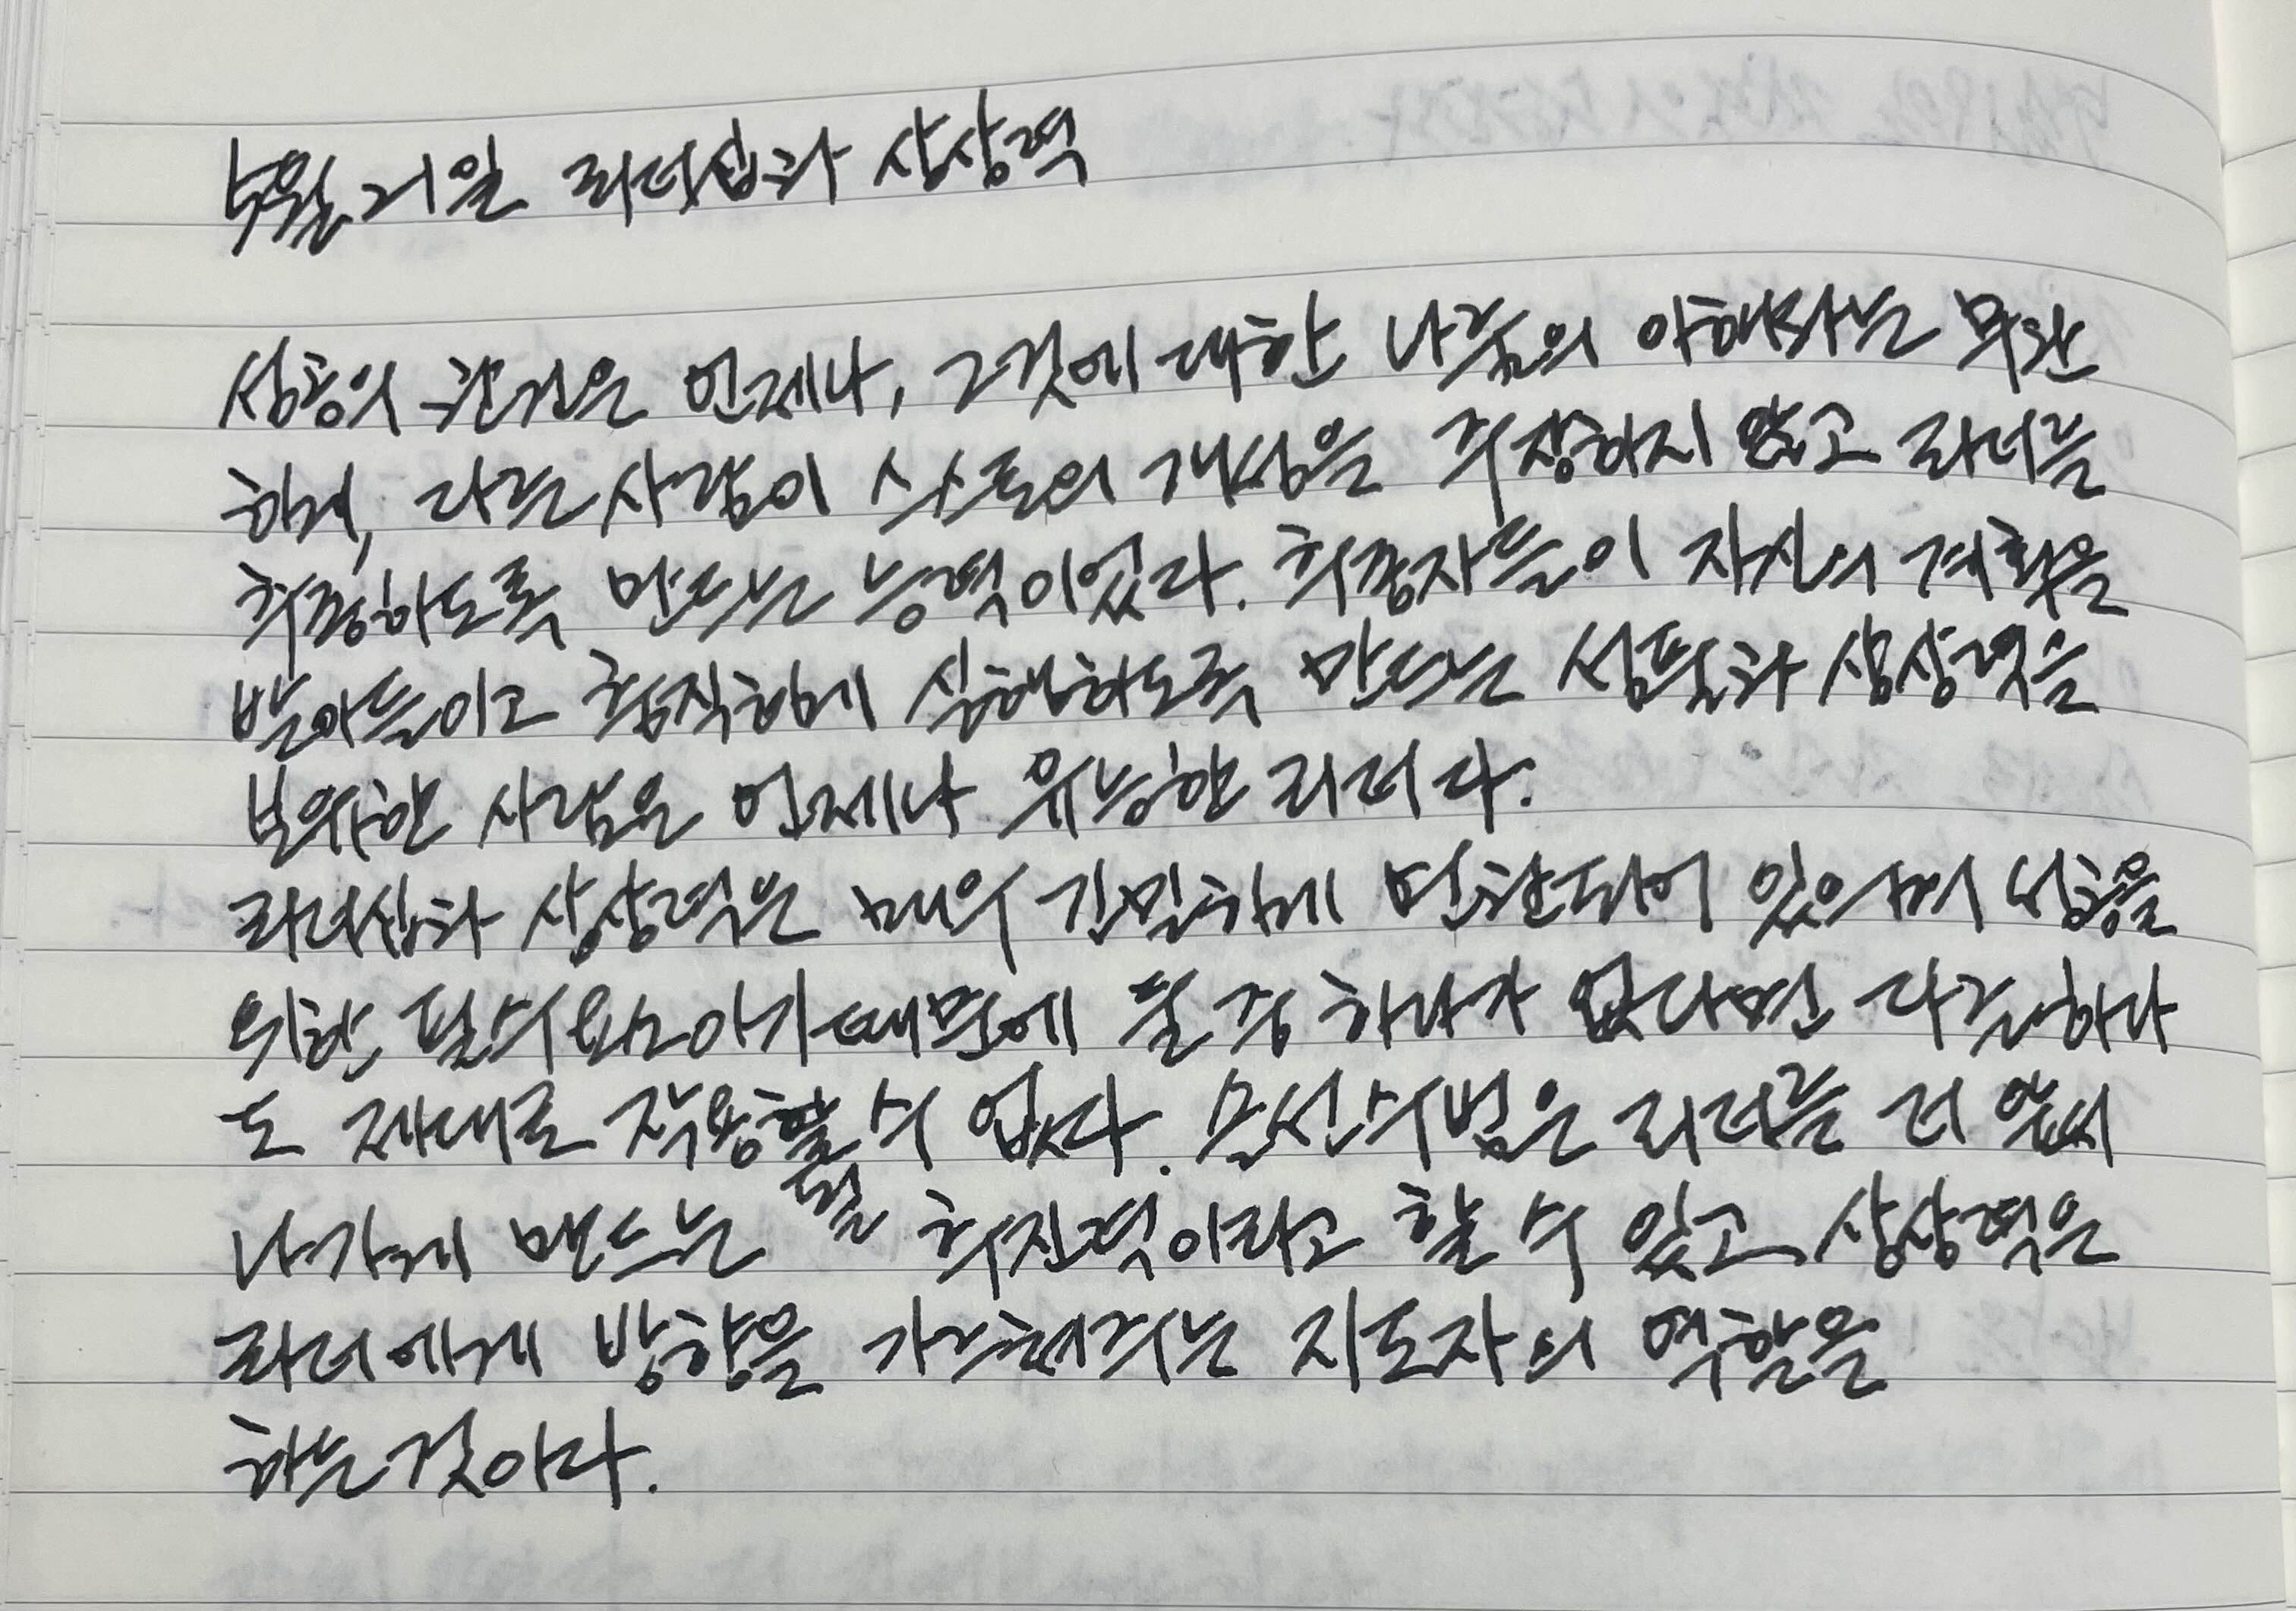 5월 21일 리더십과 상상력
성공의 관건은 언제나, 그것에 대한 나름의 이해하는
하며, 다른 사람이 스스로의 개성을 주장하지 않고 리더를
추종하도록 만드는 능력이었다. 추종자들이 자신의 계획을
받아들이고 충직하게 실행하도록 만드는 성품과 상상력을
보유한 사람은 언제나 유능한 리더다.
리더십과 상상력은 매우 긴밀하게 연관되어 있으며 성공을
위한 필수요소이기 때문에 둘 중 하나가 없다면 다른 하나
도 제대로 작용할 수 없다. 솔선수범은 리더를 더 앞서
나가게 만드는 될 추진력이라고 할 수 있고, 상상력은
리더에게 방향을 가르쳐주는 지도자의 역할을
하는 것이다.